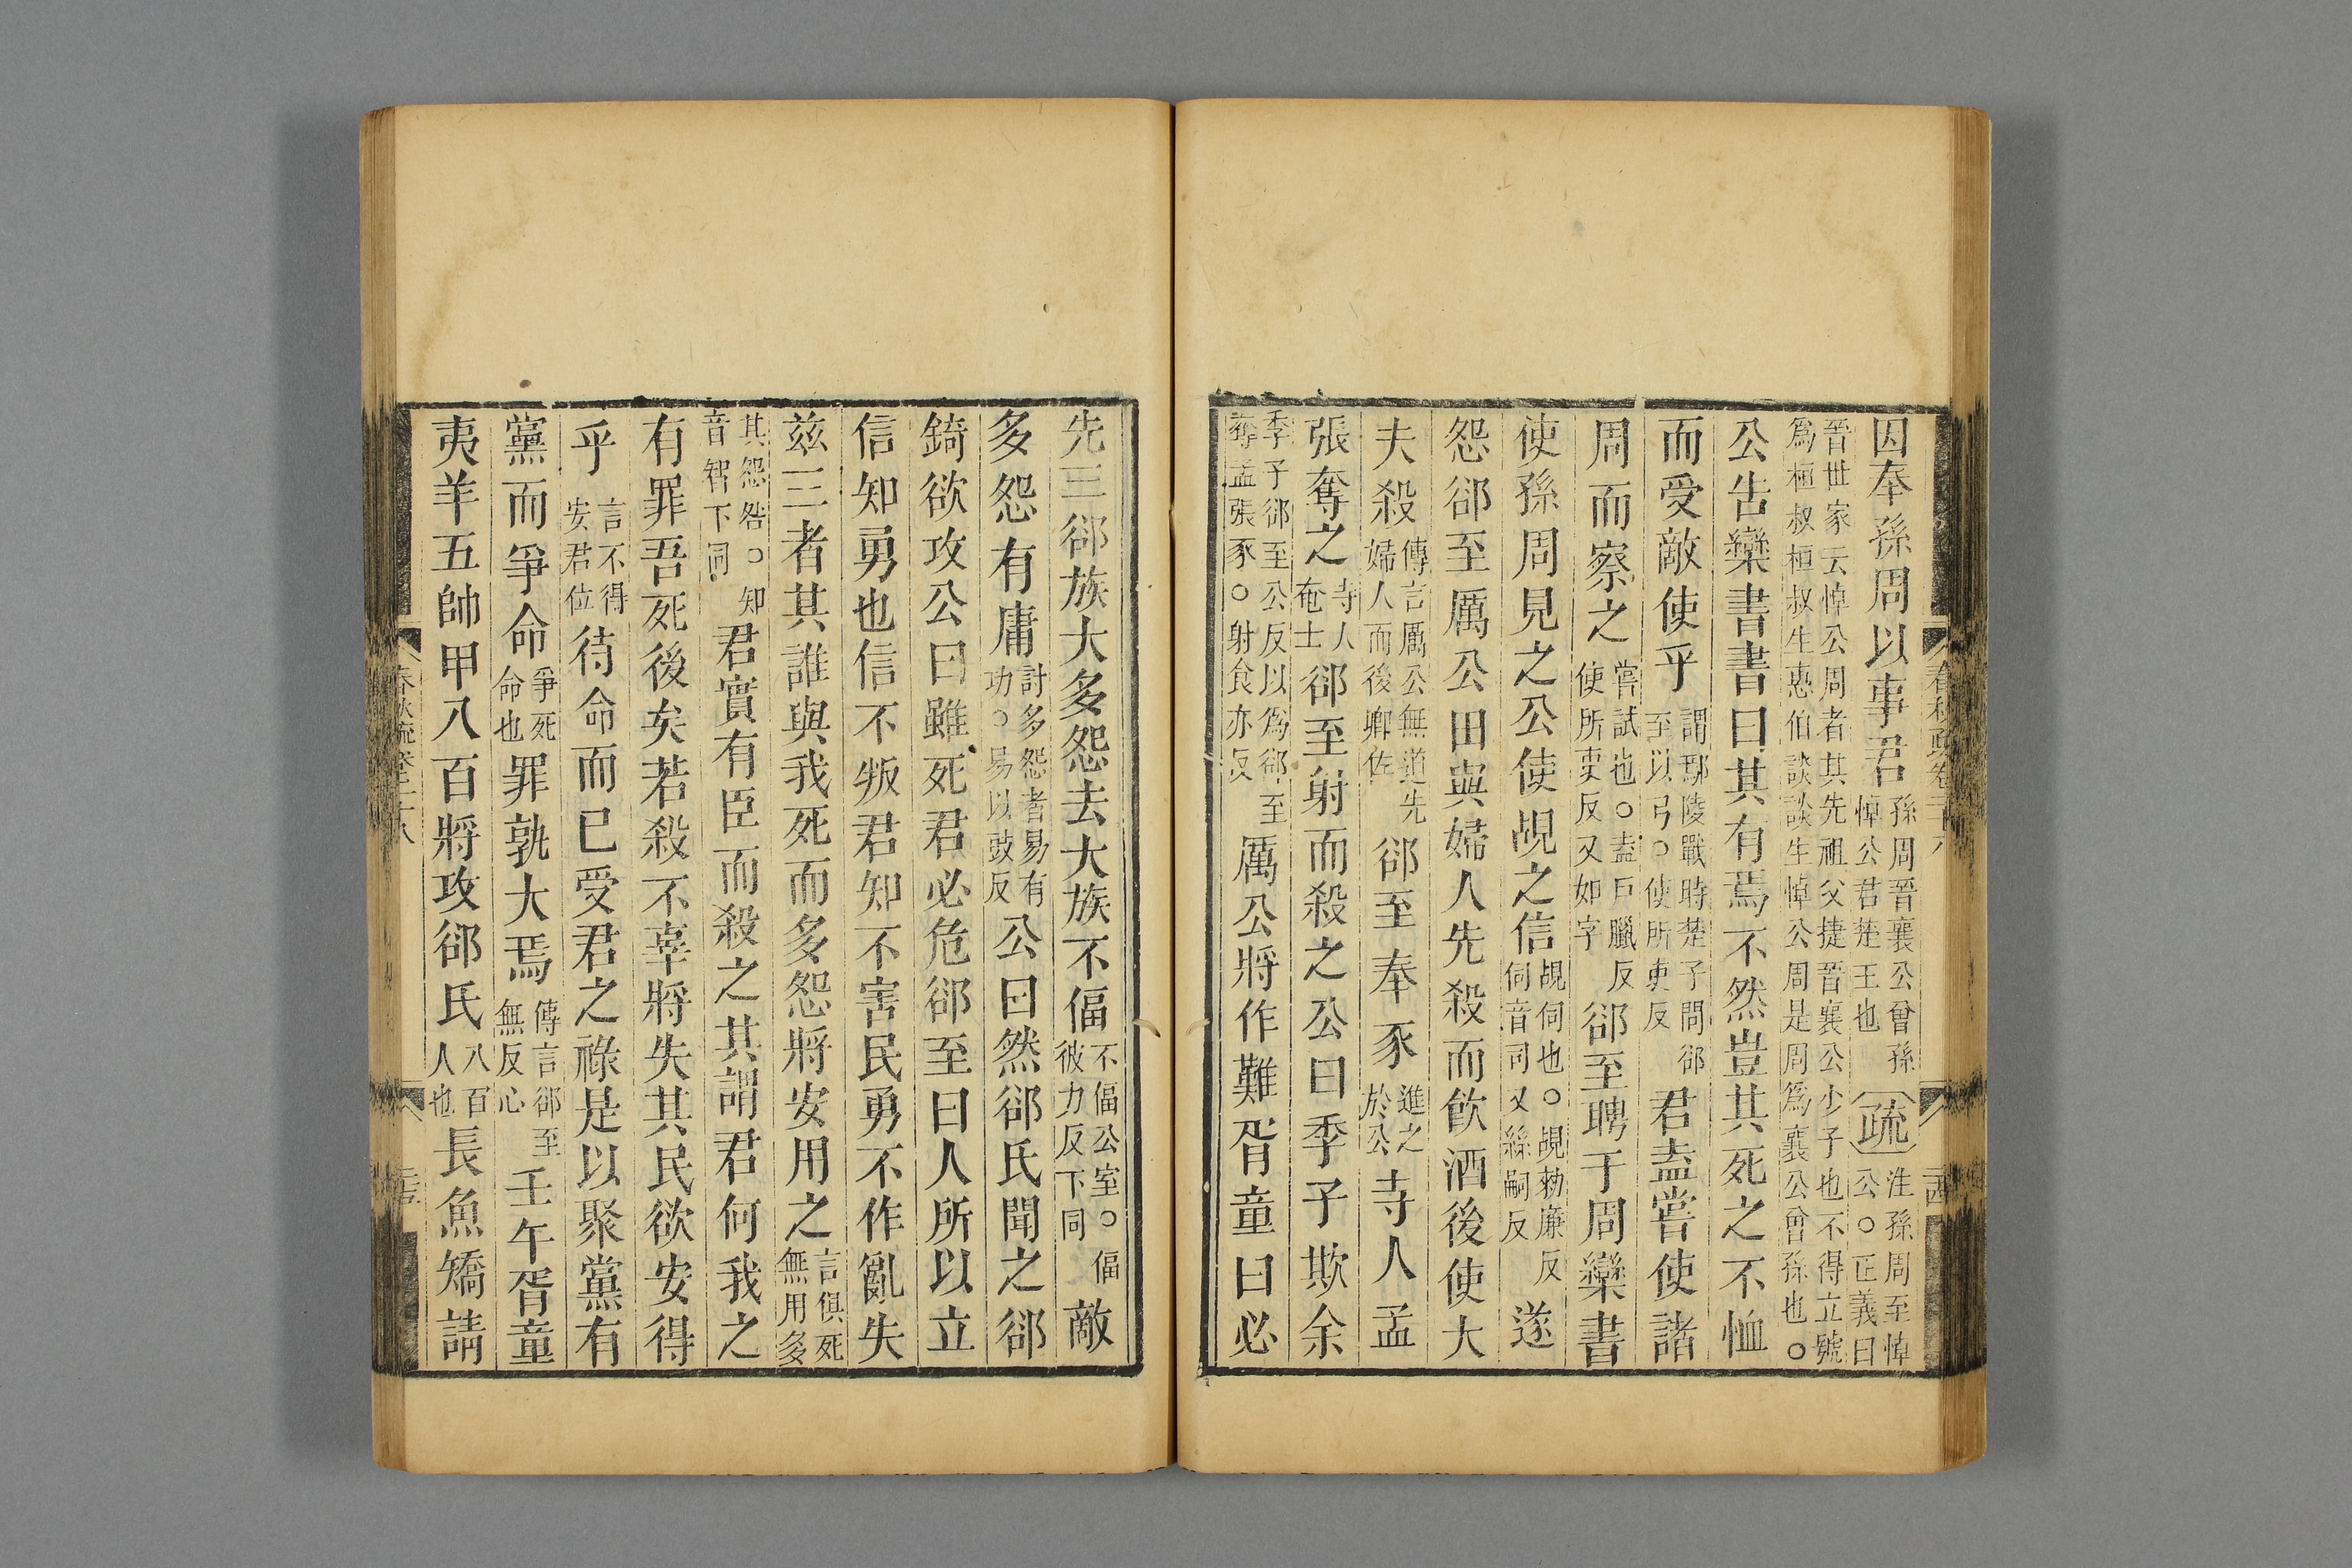 因奉孫周以事君孫周晉襄公曾孫悼公君楚王也疏注孫周至悼公○正義曰
晉世家云悼公周者其先祖父捷晉襄公少子也不得立號爲桓叔桓叔生惠伯談談生悼公周是周爲襄公曾孫也○
公告欒書書曰其有焉不然豈其死之不恤
而受敵使乎謂鄢陵戰時楚子問郤至以弓○使所吏反君盍嘗使諸
周而察之嘗試也○盍戸臘反使所吏反又如字郤至聘于周欒書
使孫周見之公使覘之信覘伺也○覘勑廉反伺音司又絲嗣反遂
怨郤至厲公田與婦人先殺而飮酒後使大
夫殺傳言厲公無道先婦人而後卿佐郤至奉豕進之於公寺人孟
張奪之寺人奄士郤至射而殺之公曰季子欺余
季子郤至公反以爲郤至奪孟張豕○射食亦反厲公將作難胥童曰必
先三郤族大多怨去大族不偪不偪公室○偪彼力反下同敵
多怨有庸討多怨者易有功○易以豉反公曰然郤氏聞之郤
錡欲攻公曰雖死君必危郤至曰人所以立
信知勇也信不叛君知不害民勇不作亂失
茲三者其誰與我死而多怨將安用之言俱死無用多
其怨咎○知音智下同君實有臣而殺之其謂君何我之
有罪吾死後矣若殺不辜將失其民欲安得
乎言不得安君位待命而已受君之祿是以聚黨有
黨而爭命爭死命也罪孰大焉傳言郤至無反心壬午胥童
夷羊五帥甲八百將攻郤氏八百人也長魚矯請
春秋疏卷二十八